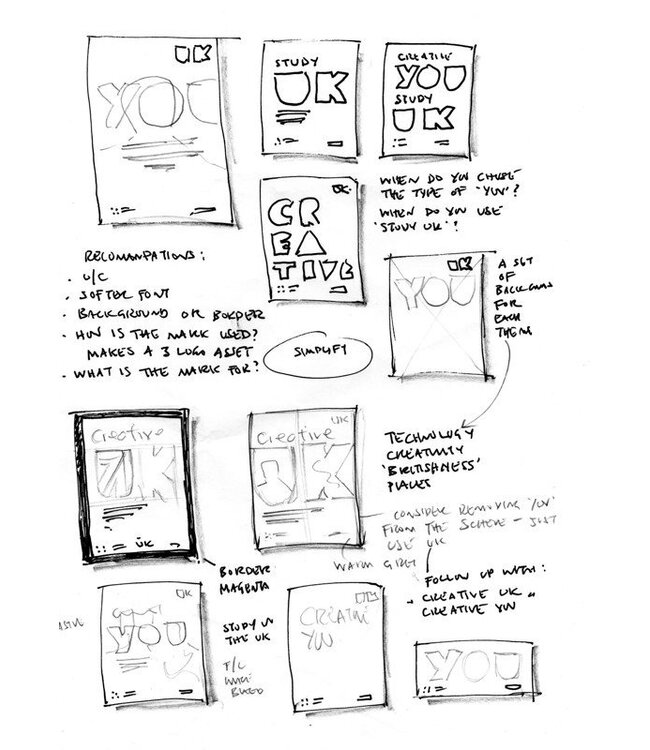 UK
YOU
STUDY
UK
CREATIVE
YOU
STUDY
UK
UK
CR
EA
TIVE
WHEN DO YOU CHOOSE
THE TYPE OF 'YOU'?
WHEN DO YOU USE
'STUDY UK'?
UK
YOU
A SET
OF
BACKGROUNDS
FOR
EACH
THEME
U/C
SOFTER FONT
BACKGROUND OR BORDER
HOW IS THE MARK USED?
MAKES A 3 LOGO ASSET
WHAT IS THE MARK FOR?
SIMPLIFY
Creative
UK
UK
UK
Creative
UK
TECHNOLOGY
CREATIVITY
'BRITISHNESS'
PLACES
CONSIDER REMOVING 'YOU'
FROM THE SCHEME – JUST
USE UK
WARM GREY
BORDER
MAGENTA
FOLLOW UP WITH:
CREATIVE UK
CREATIVE YOU
UK
YOU
UK
STUDY IN
THE UK
UK
CREATIVE
YOU
YOU